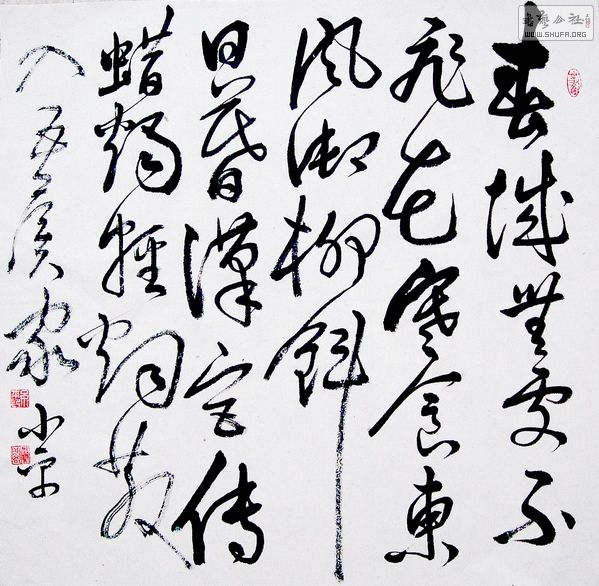 春城無處不
飛花寒食東
風御柳斜
日暮漢宫传
蜡燭輕烟散
入五侯家
書藝公社
WWW.SHUFA.ORG